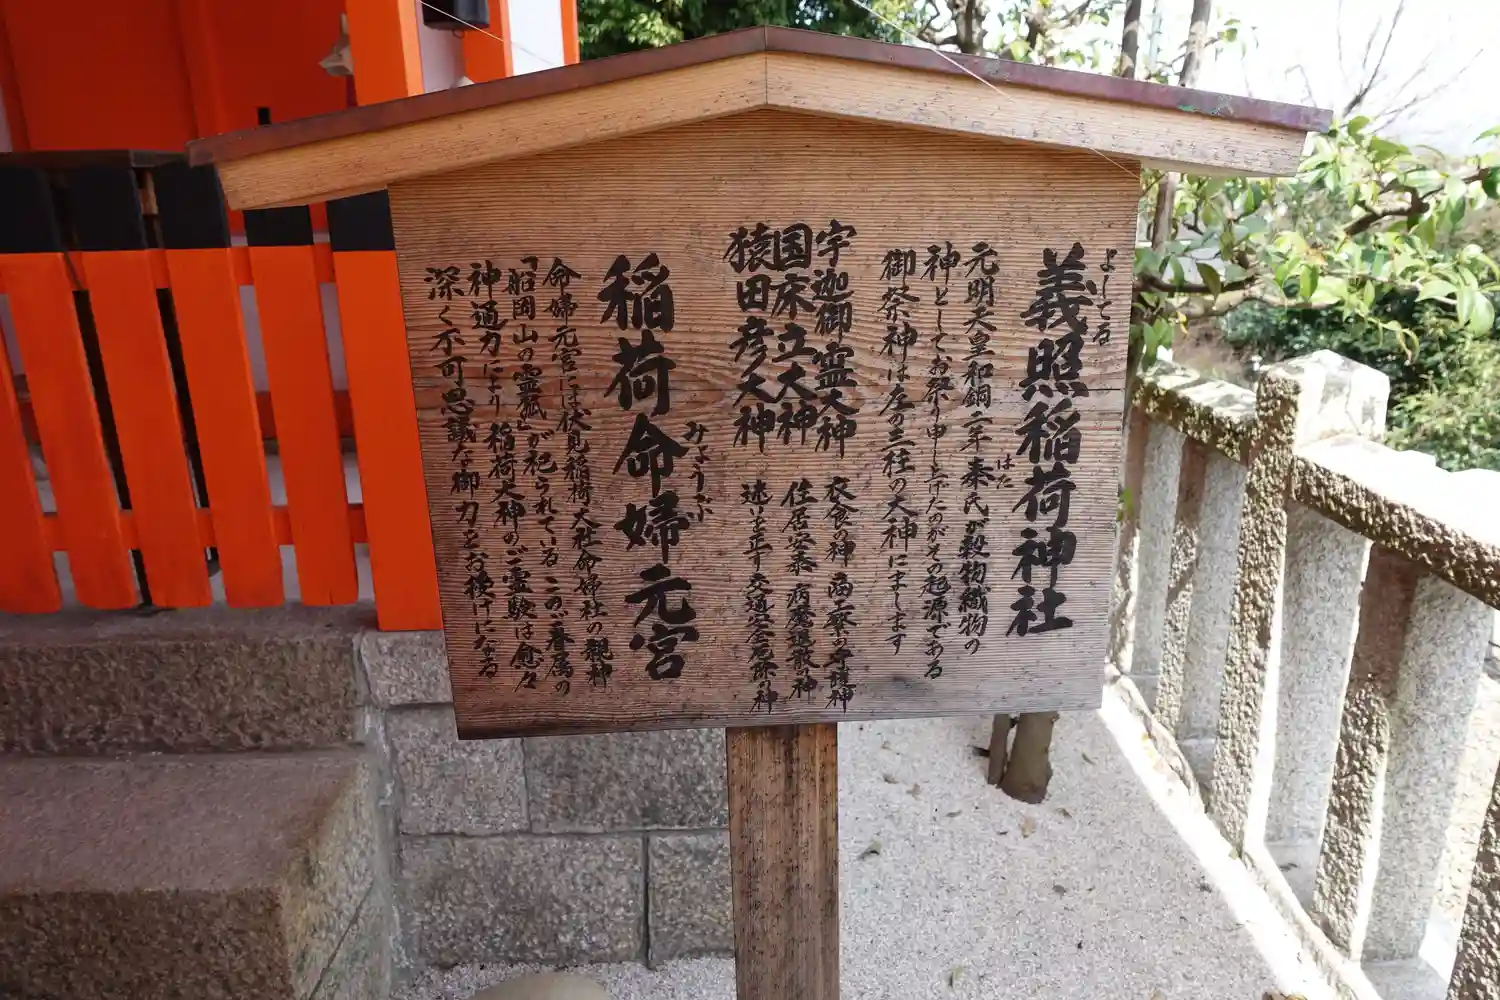 義照稲荷神社
よしてる
元明天皇和銅二年秦氏が穀物織物の
はた
神としてお祭り申し上げたのがその起源である
御祭神は左の三柱の大神にまします
宇迦御霊大神 衣食の神 商工業の守護神
国床立大神 住居安泰 病魔退散の神
猿田彦大神 迷いを正す 交通安全厄除の神
稲荷命婦元宮
みょうぶ
命婦元宮には伏見稲荷大社命婦社の親神
「船岡山の霊狐」が祀られている このご眷属の
神通力により稲荷大神のご霊験は愈々
深く不可思議な御力をお授けになる